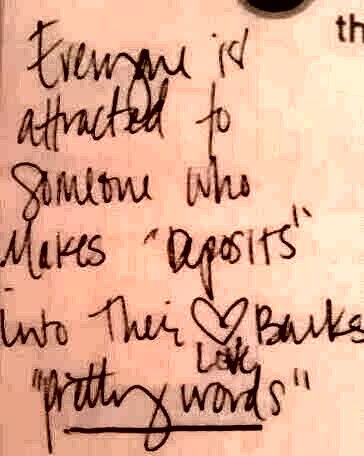 th
Everyone is
attracted to
Someone who
Makes "Deposits"
into Their ♡ Banks
Love
"pretty words"